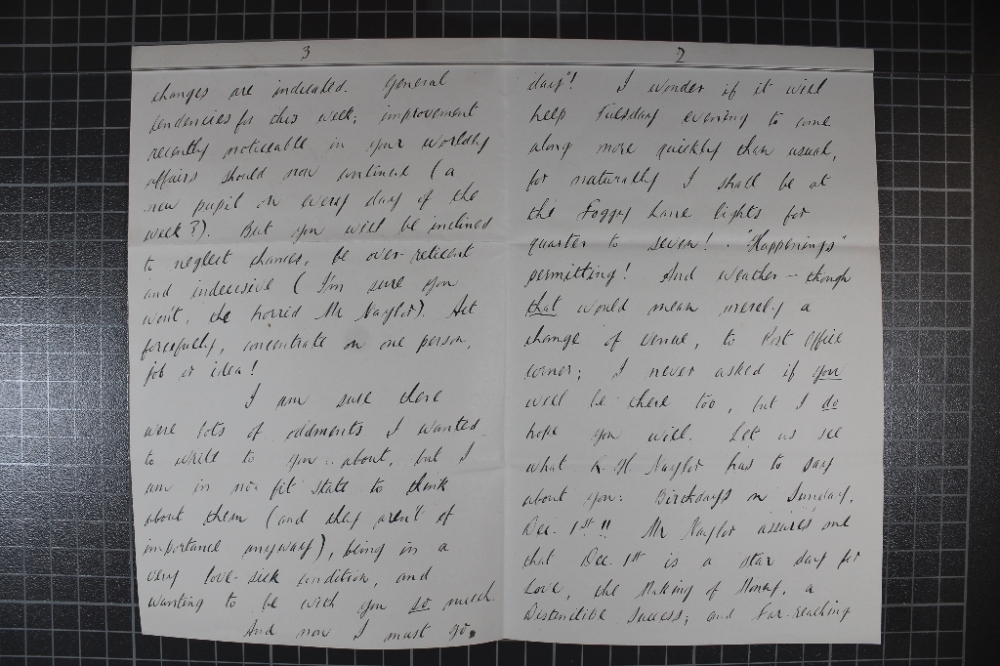 2
days"! I wonder if it will
help Tuesday evening to come
along more quickly than usual,
for naturally I shall be at
the Foggy Lane lights for
quarter to seven! . "Happenings"
permitting! And weather – though
that would mean merely a
change of venue, to Post Office
corner; I never asked if you
will be there too, but I do
hope you will. Let us see
what R. H. Naylor has to say
about you: Birthdays on Sunday,
Dec. 1st!! Mr Naylor assures me
that Dec. 1st is a star day for
Love, the Making of Money, a
Distinctive Success; and Far-reaching
3
changes are indicated. General
tendencies for this week; improvement
recently noticeable in your worldly
affairs should now continue (a
new pupil on every day of the
week?). But you will be inclined
to neglect chances, be over-reticent
and indecisive (I'm sure you
won't, the horrid Mr Naylor). Act
forcefully, concentrate on one person,
job or idea!
I am sure there
were lots of oddments I wanted
to write to you about, but I
am in no fit state to think
about them (and they aren't of
importance anyway), being in a
very love-sick condition, and
wanting to be with you so much.
And now I must go.